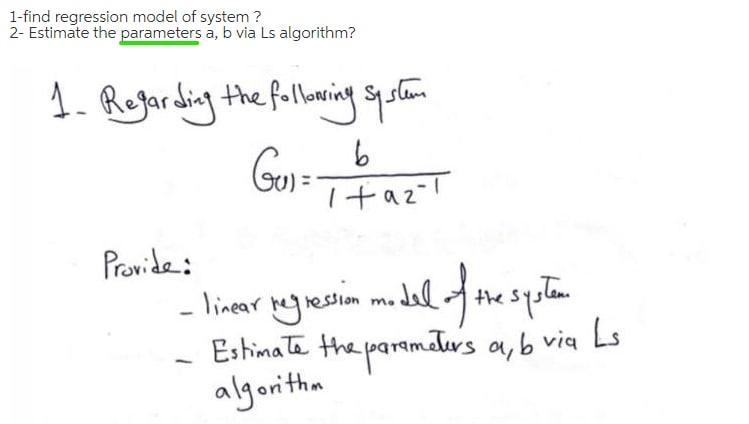 1-find regression model of system ?
2- Estimate the parameters a, b via Ls algorithm?
1- Regarding the following system
G(z) = b / 1 + az⁻¹
Provide:
- linear regression model of the system
- Estimate the parameters a, b via Ls
algorithm